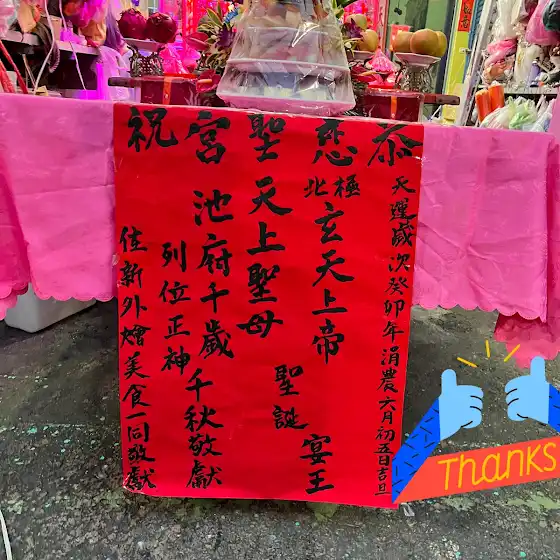 恭
懿
聖
宮
祝
天運歲次癸卯年涓農六月初五日吉旦
北極
玄天上帝
聖誕
宴王
天上聖母
池府千歲
千秋敬獻
列位正神
佳新外燴美食一同敬獻
Thanks